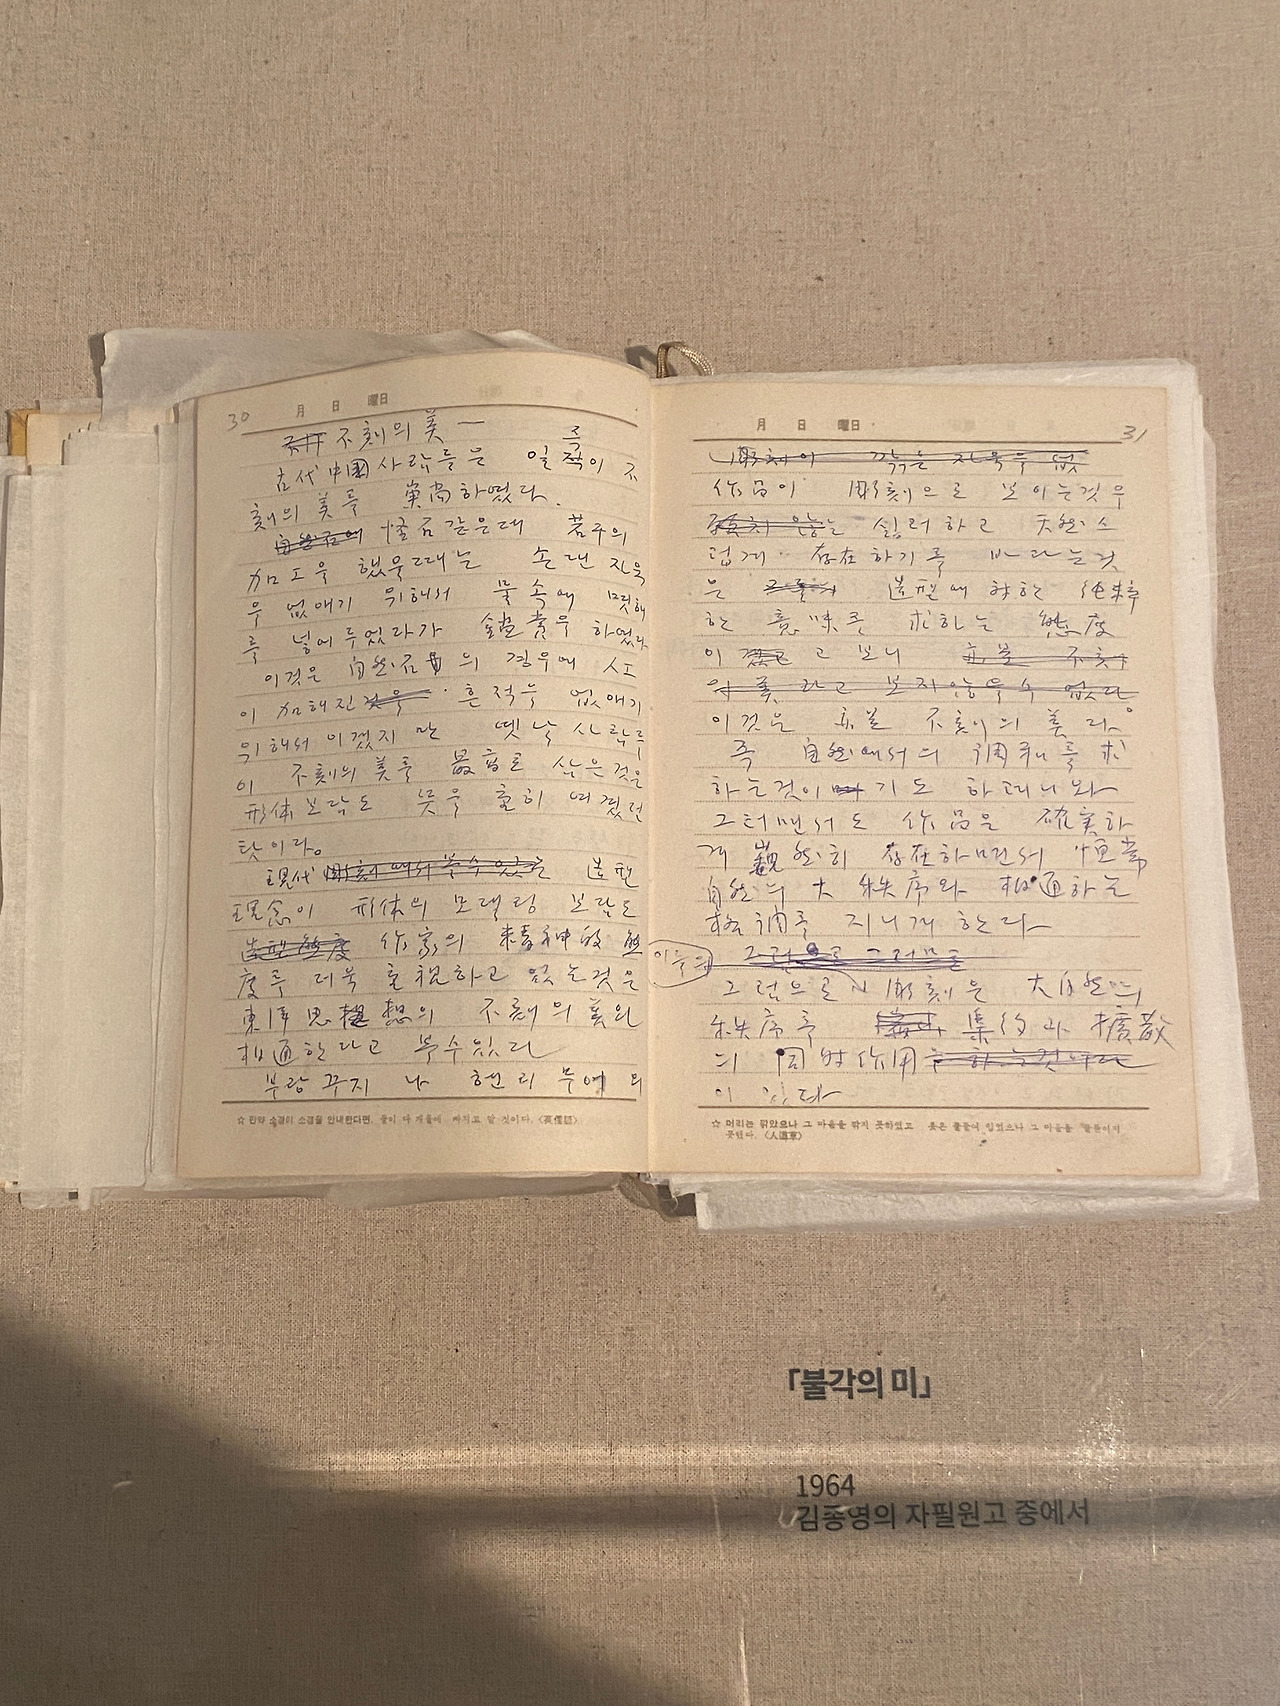 30
月 日 曜日
不刻의 美 —
古代 中國 사람들은 일즉이 不
刻의 美를 崇尙하였다.
怪石같은데 若干의
加工을 했을때는 손댄 자욱
을 없애기 위해서 물속에 몇해
를 넣어두었다가 鑑賞을 하였다
이것은 自然石 의 경우에 人工
이 加해진 흔적을 없애기
위해서 이겠지만 옛날 사람들
이 不刻의 美를 最高로 삼은것은
形体보담도 뜻을 重히 여겼던
탓이다。
現代 造型
理念이 形体의 모델링 보담도
作家의 精神的 態
度를 더욱 重視하고 있는것은
東洋 思想의 不刻의 美와
相通한다고 볼수있다
부랑쿠지 나 헨리 무어의
☆ 만약 소경이 소경을 안내한다면, 둘이 다 개울에 빠지고 말 것이다.
月 日 曜日
31
作品이 彫刻으로 보이는것을
싫러하고 天然스
럽게 存在하기를 바라는것
은 造型에 対한 純粹
한 意味를 求하는 態度
이 고 보니
이것은 亦是 不刻의 美라。
즉 自然에서의 調和를 求
하는것이 기도 하려니와
그러면서도 作品은 確実하
게 巍然히 存在하면서 恒常
自然의 大秩序와 相通하는
格調를 지니게 한다
이들의
그럼으로 彫刻은 大自然의
秩序를 集約과 擴散
의 同時作用
이 있다
☆ 머리는 깎았으나 그 마음을 깎지 못하였고 옷은 물들여 입었으나 그 마음을 물들이지
못했다.
「불각의 미」
1964
김종영의 자필원고 중에서